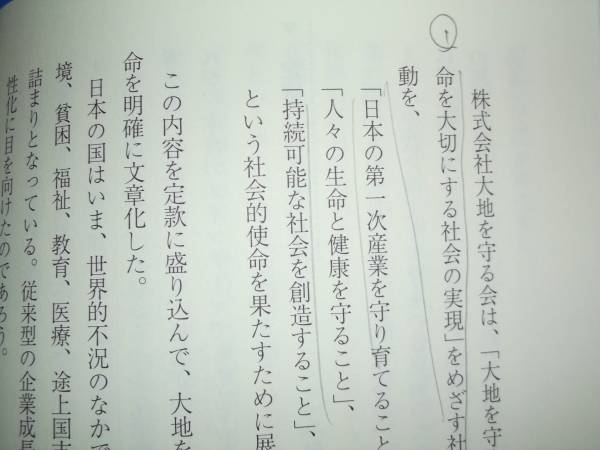 株式会社大地を守る会は、「大地を守
命を大切にする社会の実現」をめざす社
動を、
「日本の第一次産業を守り育てること
「人々の生命と健康を守ること」、
「持続可能な社会を創造すること」、
という社会的使命を果たすために展
この内容を定款に盛り込んで、大地を
命を明確に文章化した。
日本の国はいま、世界的不況のなかで
境、貧困、福祉、教育、医療、途上国支
詰まりとなっている。従来型の企業成長
性化に目を向けたのであろう。